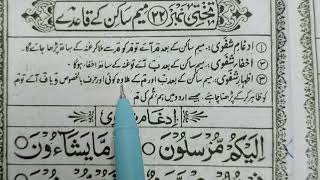 تختی نمبر ۲۲ میم ساکن کے قاعدے
① ادغام شفوی: میم ساکن کے بعد م آئے تو م کو م میں ملا کر غنہ کے ساتھ پڑھا جائے گا۔
② اخفاء شفوی: میم ساکن کے بعد ب آئے تو غنہ کے ساتھ اخفاء ہوگا۔
③ اظہار شفوی: میم ساکن کے بعد ب اور م کے علاوہ کوئی اور حرف بالخصوص و یا ف آئے تو م
کو ظاہر کر کے پڑھنا چاہئے۔ جیسے اردو میں ہم تم کی م
ادغام شفوی
اِلَیْکُمْ مُّرْسَلُوْنَ ۝ مَا یَشَآءُوْنَ ۝